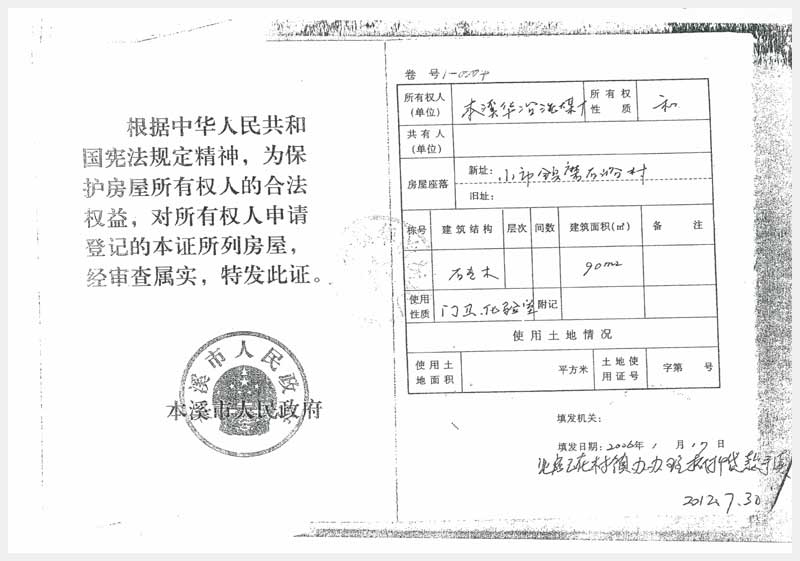 根据中华人民共和
国宪法规定精神，为保
护房屋所有权人的合法
权益，对所有权人申请
登记的本证所列房屋，
经审查属实，特发此证。
本溪市人民政府
本溪市人民政府
卷 号 1-0504
所有权人（单位） 本溪华冶洗煤厂 所有权性质 私
共有人（单位）
房屋座落 新址：小市镇磨石峪村
旧址：
栋号 建筑结构 层次 间数 建筑面积（㎡） 备 注
石瓦木 90m2
使用性质 门卫.化验室 附记
使用土地情况
使用土地面积 平方米 土地使用证号 字第 号
填发机关：
填发日期：2006年 1 月 17 日
2012.7.30